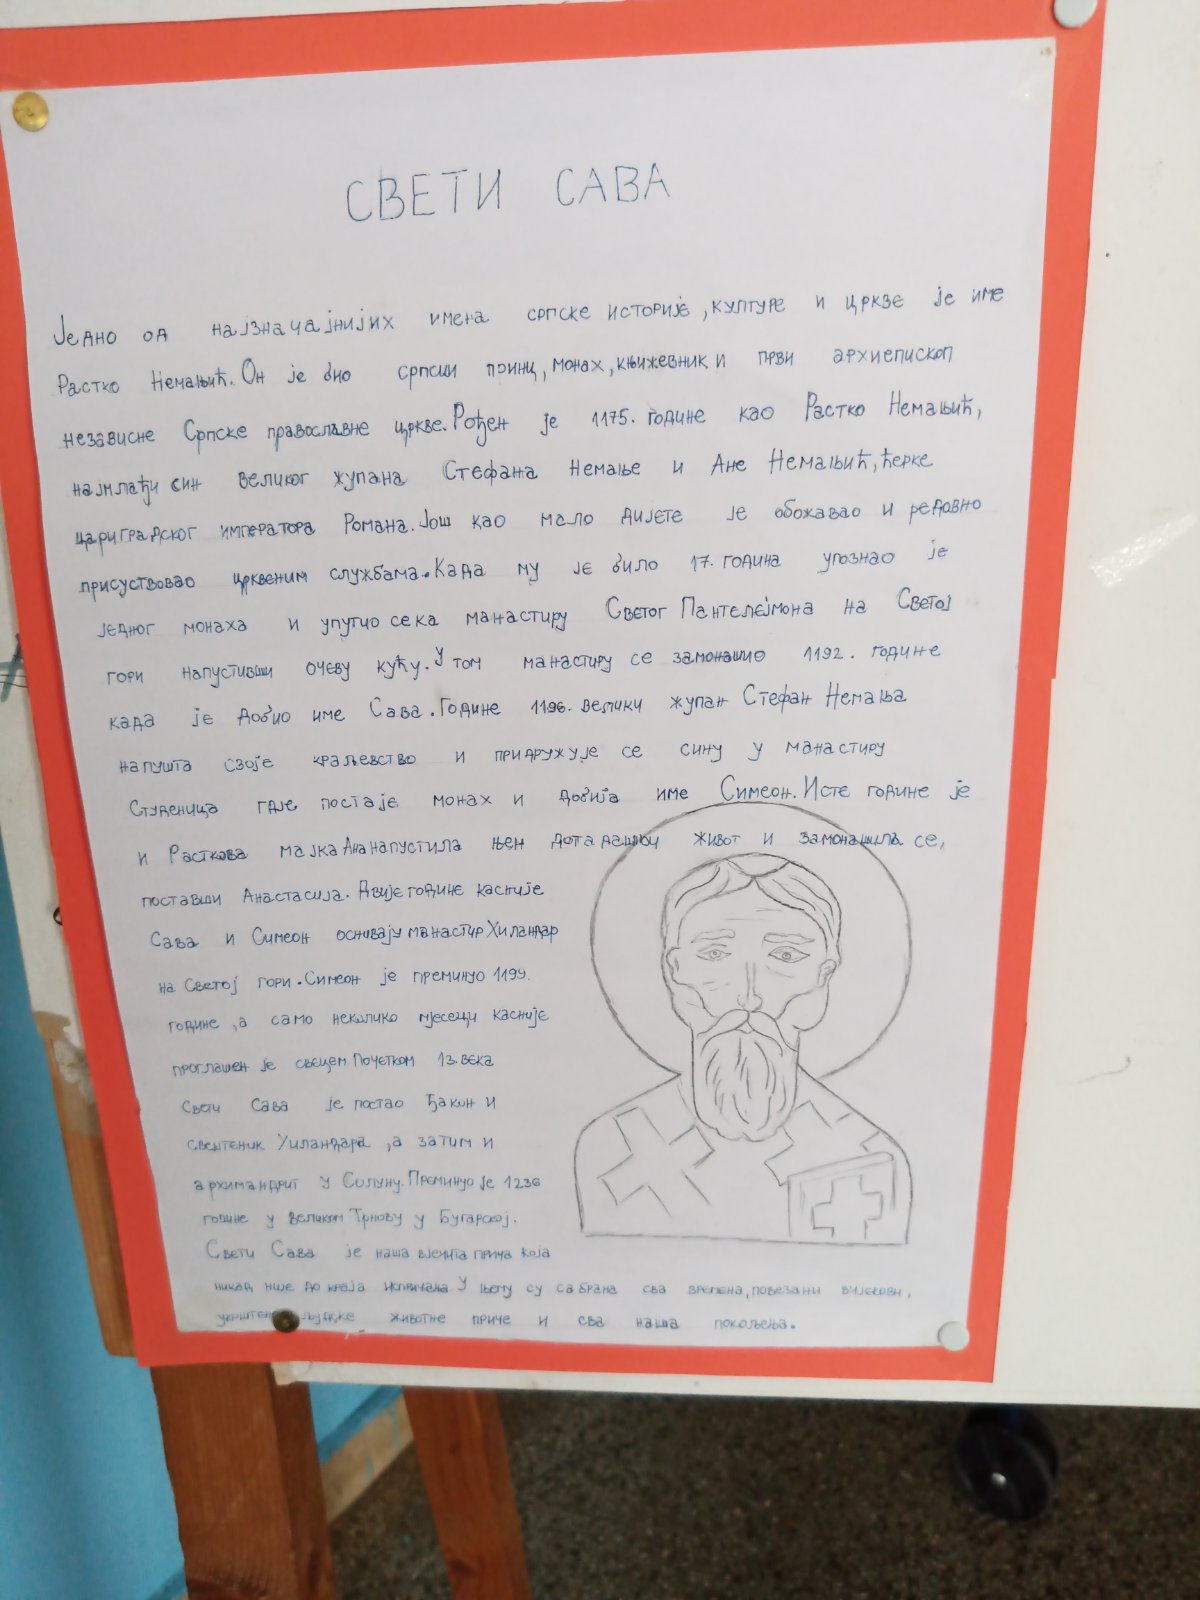 СВЕТИ САВА
Једно од најзначајнијих имена српске историје, културе и цркве је име
Растко Немањић. Он је био српски принц, монах, књижевник и први архиепископ
независне Српске православне цркве. Рођен је 1175. године као Растко Немањић,
најмлађи син великог жупана Стефана Немање и Ане Немањић, ћерке
цариградског императора Романа. Још као мало дијете је обожавао и редовно
присуствовао црквеним службама. Када му је било 17. година упознао је
једног монаха и упутио се ка манастиру Светог Пантелејмона на Светој
гори напустивши очеву кућу. У том манастиру се замонашио 1192. године
када је добио име Сава. Године 1196. велики жупан Стефан Немања
напушта своје краљевство и придружује се сину у манастиру
Студеница гдје постаје монах и добија име Симеон. Исте године је
и Расткова мајка Ана напустила њен дотадашњи живот и замонашила се,
поставши Анастасија. Двије године касније
Сава и Симеон оснивају манастир Хиландар
на Светој гори. Симеон је преминуо 1199.
године, а само неколико мјесеци касније
проглашен је свецем Почетком 13. века
Свети Сава је постао ђакон и
свештеник Хиландара, а затим и
архимандрит у Солуну. Преминуо је 1236
године у Великом Трнову у Бугарској.
Свети Сава је наша вјечита прича која
никад није до краја испричана У њему су сабрана сва времена, повезани вијекови,
животне приче и сва наша покољења.